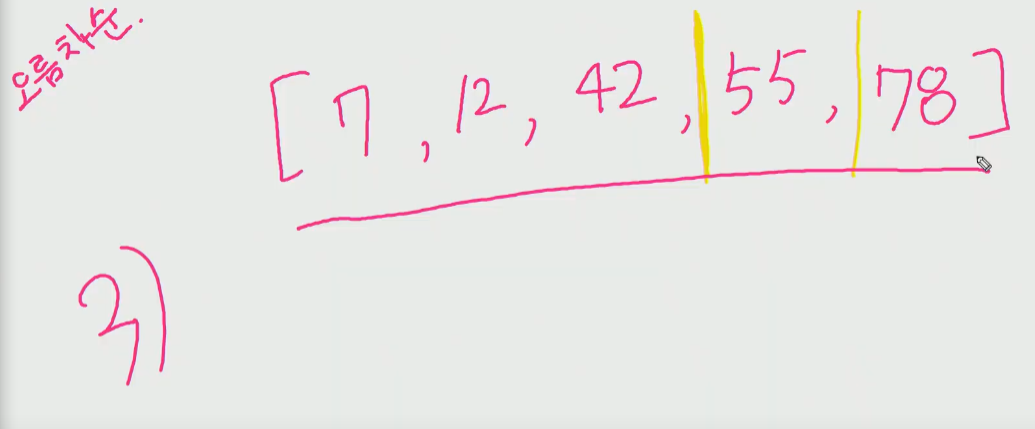 오름차순.
[ 7, 12, 42, 55, 78 ]
3)